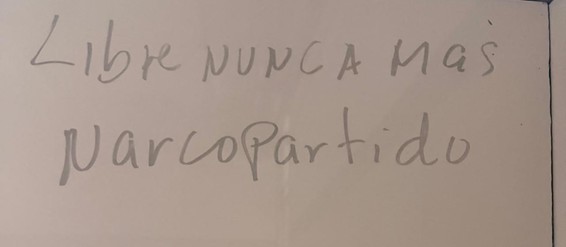 Libre NUNCA Mas
NarcoPartido